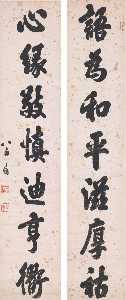 語為和平滋厚祜
心緣敬慎迪亨衢